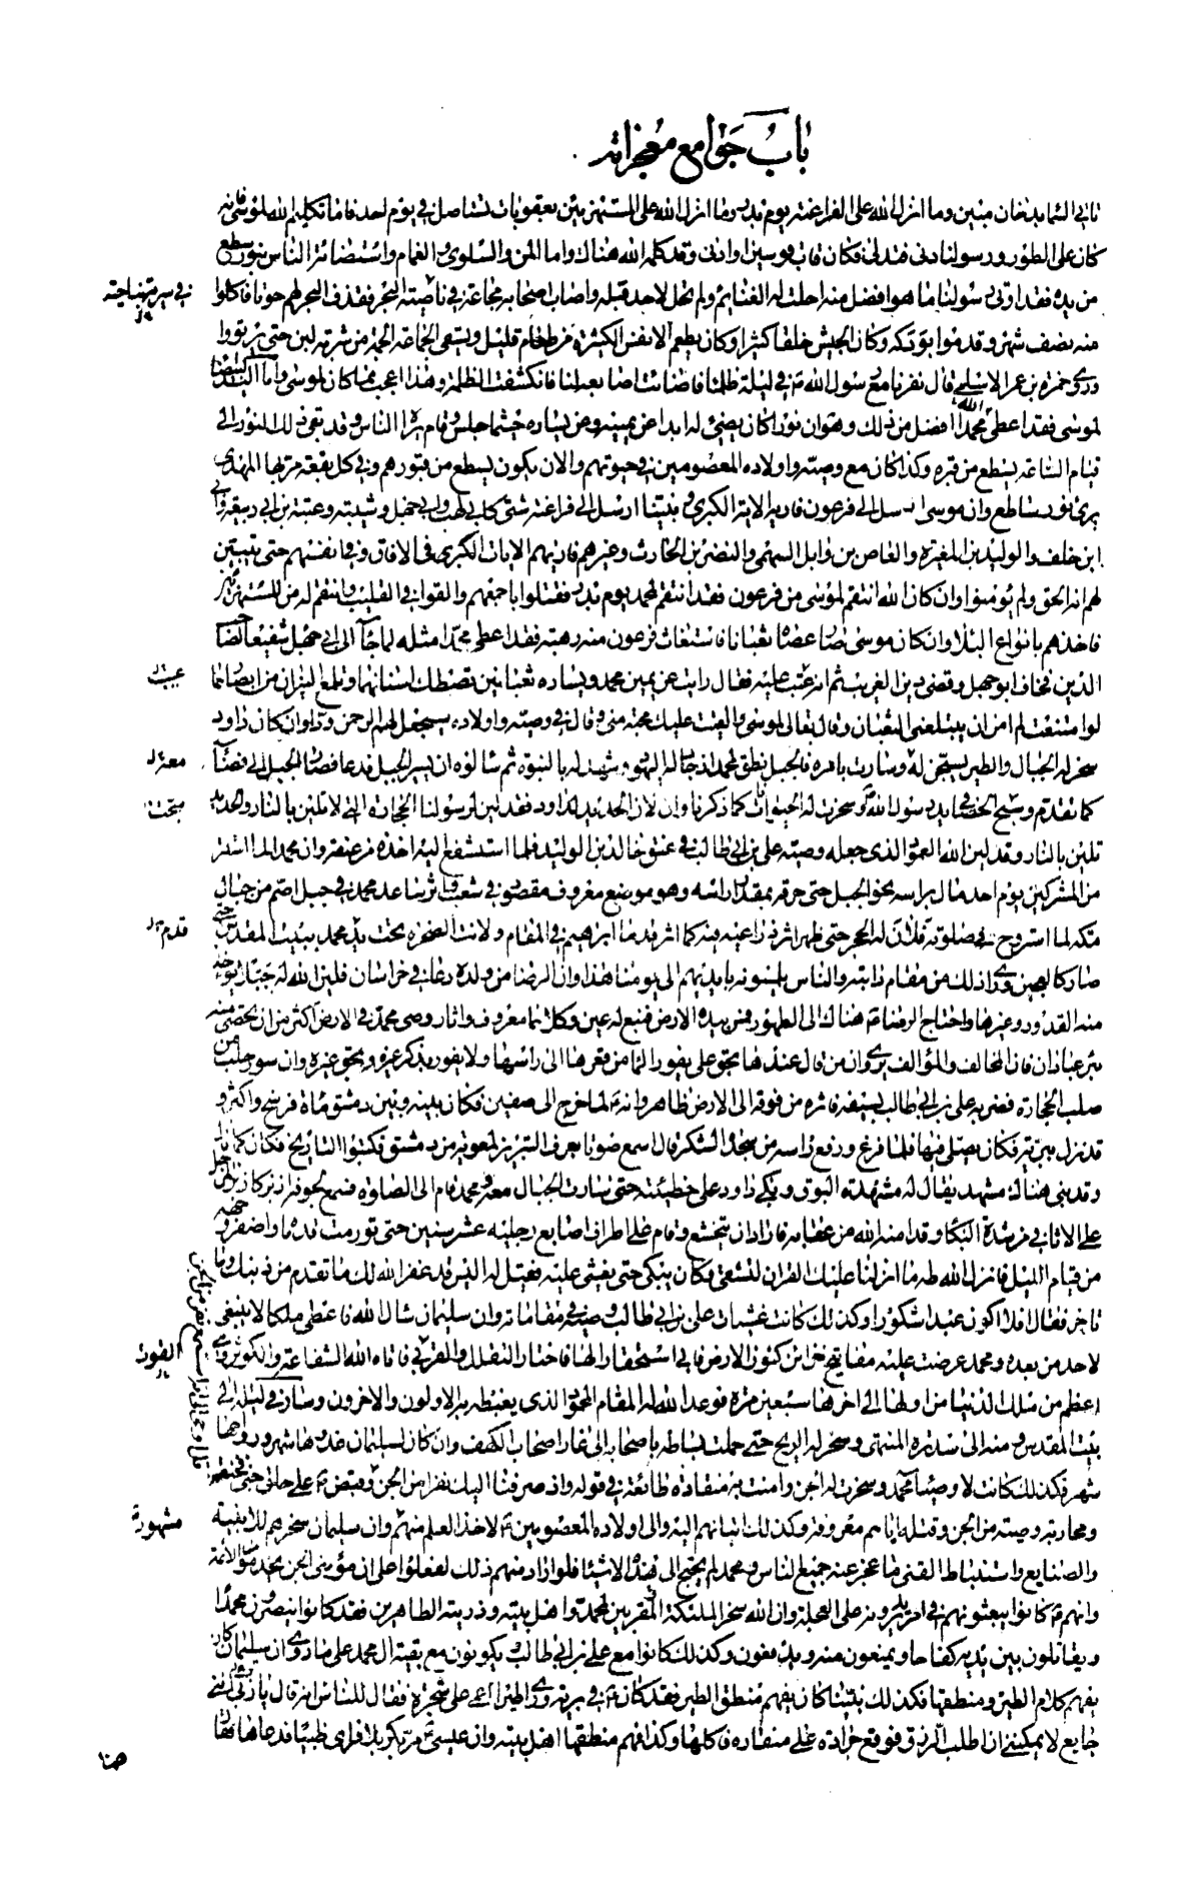 باب جوامع معجزاته
تاتي السماء بدخان مبين وما انزل الله على الفراعنة يوم بدر وما انزل الله على المستهزئين بعقوبات تستاصل في يوم احد فاما تكليم الله لموسى فانه
كان على الطور ورسولنا دنى فتدلى فكان قاب قوسين او ادنى وقد كلمه الله هناك واما المن والسلوى والغمام واستضائة الناس بنور سطع
من يده فقد اوتي رسولنا ما هو افضل منه احلت له الغنائم ولم تحل لاحد قبله واصاب اصحابه مجاعة في ناصيته البحر فقذف البحر لهم حوتا فاكلوا
في سرية بناحية
منه نصف شهر وقدموا بودكه وكان الجيش خلقا كثيرا وكان يطعم الانفس الكثيرة من طعام قليل ويسقي الجماعة الجمة من شربة لبن حتى يرتووا
وروى حمزة بن عمر الاسلمي قال نفرنا مع رسول الله ص في ليلة ظلماء فاضائت اصابعه لنا فانكشفت الظلمة وهذا اعجب مما كان لموسى واما اليد البيضاء
لموسى فقد اعطى الله محمدا افضل من ذلك وهو ان نورا كان يضيئ له ابدا عن يمينه وعن يساره حيثما جلس وقام يراه الناس وقد بقي ذلك النور الى
قيام الساعة يسطع من قبره وكذا كان مع وصيه واولاده المعصومين في حيوتهم والان يكون يسطع من قبورهم وفي كل بقعة مر بها المهدي
يرى نور ساطع وان موسى ارسل الى فرعون فاراه الاية الكبرى ونبينا ارسل الى فراعنة شتى كابي لهب وابي جهل وشيبة وعتبة بن ابي ربيعة وابي
ابن خلف والوليد بن المغيرة والعاص بن وايل السهمي والنضر بن الحارث وغيرهم فاريهم الايات الكبرى في الافاق وفي انفسهم حتى يتبين
لهم انه الحق ولم يؤمنوا وان كان الله انتقم لموسى من فرعون فقد انتقم لمحمد يوم بدر فقتلوا باجمعهم والقوا في القليب وانتقم له من المستهزئين
فاخذهم بانواع البلاء وان كان موسى صار عصاه ثعبانا فاستغاث فرعون منه رهبة فقد اعطى محمدا مثله لما جاء الى ابي جهل شفيعا لصاحب
الدين فخاف ابو جهل وقضى دين الغريب ثم انه عتب عليه فقال رايت عن يمين محمد ويساره ثعبانين تصطك اسنانهما وتلمع النيران من ابصارهما
عيب
لو امتنعت لم امن ان يبتلعني الثعبان وقال تعالى لموسى والقيت عليك محبة مني وقال في وصيه واولاده سيجعل لهم الرحمن ودا وان كان داود
سخر له الجبال والطير يسبحن له وسارت بامره فالجبل نطق لمحمد اذ جادله اليهود وشهد له بالنبوة ثم سالوه ان يسير الجبل فدعا فصار الجبل الى فضاء
معه
كما تقدم وسبح الحصا في يد رسول الله وسخرت له الحيوانات كما ذكرنا وان لان الحديد لداود فقد لين لرسولنا الحجارة التي لا تلين بالنار والحديد
سبحت
تلين بالنار وقد لين الله العمود الذي جعله وصيه علي بن ابي طالب في عنق خالد بن الوليد فلما استشفع اليه اخذه من عنقه وان محمدا لما استتر
من المشركين يوم احد مال براسه نحو الجبل حتى خرقه بمقدار راسه وهو موضع معروف مقصود في شعب واثر ساعد محمد في جبل اصم من جبال
مكة لما استروح في صلوته فلان له الحجر حتى ظهر اثر ذراعيه فيه كما اثر قدما ابراهيم في المقام ولانت الصخرة تحت يد محمد ببيت المقدس حتى
قدم
صار كالعجين وراي ذلك من مقام دابته والناس يلمسونه بايديهم الى يومنا هذا وان الرضا من ولده دعا في خراسان فلين الله له جبلا يؤخذ
منه القدور وغيرها واحتاج الرضا هناك الى الطهور فمس بيده الارض فنبع له عين وكلاهما معروف واثار وصي محمد في الارض اكثر من ان يحصى منه
بئر عبادان فان المخالف والمؤالف يروى ان من قال عندها بحق علي يفور الماء من قعرها الى راسها ولا يفور بذكر غيره وبحق غيره وان سور حلب من
صلب الحجارة فضربه علي بن ابي طالب بسيفه فاثره من فوقه الى الارض ظاهر وانه لما خرج الى صفين فكان بينه وبين دمشق مائة فرسخ واكثر و
قد نزل ببرية فكان يصلي فيها فلما فرغ ورفع راسه من سجدة الشكر قال اسمع صوت بوق التبريز لمعوية من دمشق فكتبوا التاريخ فكان كما قال
وقد بني هناك مشهد يقال له مشهد البوق وبكى داود على خطيئته حتى سارت الجبال معه ومحمد قام الى الصلوة فسمع لجوفه ازيز كازيز المرجل
على الاثافي من شدة البكاء وقد امنه الله من عقابه فاراد ان يتخشع وقام على اطراف اصابع رجليه عشر سنين حتى تورمت قدماه واصفر وجهه
من قيام الليل فانزل الله طه ما انزلنا عليك القران لتشقى وكان يبكي حتى يغشى عليه فقيل له اليس قد غفر الله لك ما تقدم من ذنبك وما
تاخر فقال افلا اكون عبدا شكورا وكذلك كانت غشيات علي بن ابي طالب وصيه في مقاماته وان سليمان سال الله فاعطي ملكا لا ينبغي
لاحد من بعده ومحمد عرضت عليه مفاتيح خزاين كنوز الارض فابى استحقارا لها فاختار التقلل والقربى فاتاه الله الشفاعة والكوثر وهي
القوت
اعظم من ملك الدنيا من اولها الى اخرها سبعين مرة فوعد الله له المقام المحمود الذي يغبطه به الاولون والاخرون وسار في ليلة الى
بيت المقدس ومنه الى سدرة المنتهى وسخر له الريح حتى حملت بساطه باصحابه الى غار اصحاب الكهف وان كان لسليمان غدوها شهر ورواحها
شهر فكذلك كانت لاوصياء محمد وسخرت له الجن وامنت به منقادة طائعة في قوله واذ صرفنا اليك نفرا من الجن وقبض على حلق جني فخنقه
ومحاربة وصيه من الجن وقتله اياهم معروفة وكذلك اتيانهم اليه والى اولاده المعصومين لاخذ العلم منهم وان سليمان سخرهم للابنية
مشهورة
والصنايع واستنباط القنى ما عجز عنه جميع الناس ومحمد لم يحتج الى هذه الاشياء فلو اراد منهم ذلك لفعلوا على ان مؤمني الجن يخدمون الائمة
وانهم كانوا يبعثونهم في امر يريدونه على العجلة وان الله سخر الملئكة المقربين لمحمد واهل بيته وذريته الطاهرين فقد كانوا ينصرون محمدا
ويقاتلون بين يديه كفاحا ويمنعون منه ويدفعون وكذلك كانوا مع علي بن ابي طالب ويكونون مع بقية ال محمد على ما روي وان سليمان كان
يفهم كلام الطير ومنطقها فكذلك نبينا كان يفهم منطق الطير فقد كان في برية وراى طيرا اعمى على شجرة فقال للناس انه قال يا رب انني
جايع لا يمكنني ان اطلب الرزق فوقع جرادة على منقاره فاكلها وكذا فهم منطقها اهل بيته وان عيسى مر بكربلا فراى ظباء فدعاها
هنا